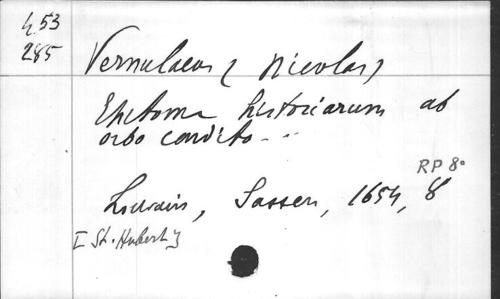 453
285
Vernulaeus (Nicolas)
Epitoma historiarum ab
orbo condito...
RP 8°
Louvain, Sassen, 1654, 8
[St. Hubert]